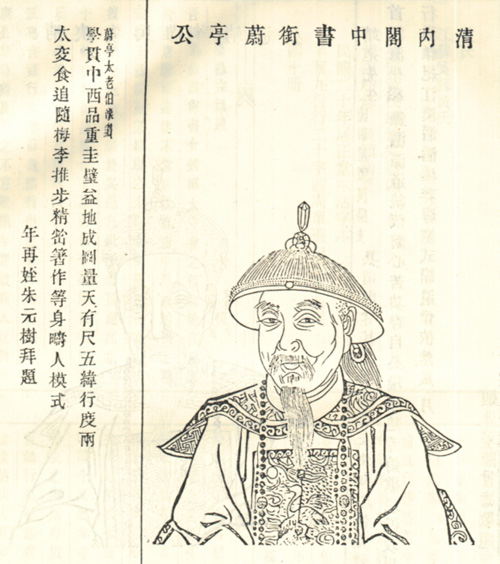 清內閣中書銜蔚亭公
蔚亭太老伯像贊
學貫中西品重圭璧益地成圖量天有尺五緯行度兩
太交食追隨梅李推步精密著作等身疇人模式
年再姪朱元樹拜題